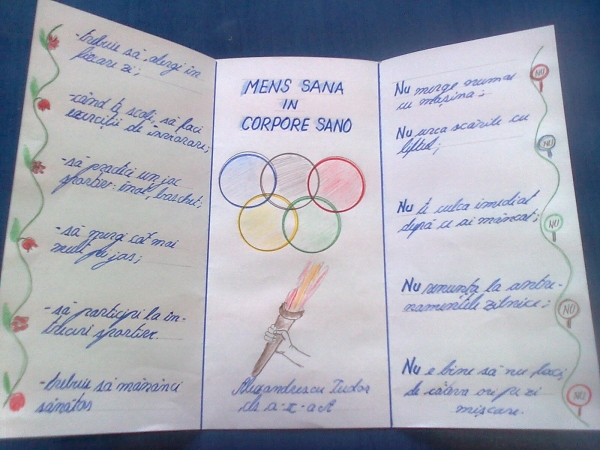 -trebuie să alergi în
fiecare zi;
-când te scoli, să faci
exerciții de înviorare;
-să practici un joc
sportiv: înot, baschet;
-să mergi cât mai
mult pe jos;
-să participi la în-
treceri sportive.
-trebuie să mănânci
sănătos
MENS SANA
IN
CORPORE SANO
Alexandrescu Tudor
cls a-II-a A
Nu merge numai
cu mașina;
Nu urca scările cu
liftul;
Nu te culca imediat
după ce ai mâncat;
Nu renunța la antre-
namentele zilnice;
Nu e bine să nu faci
de câteva ori pe zi
mișcare.
NU
NU
NU
NU
NU